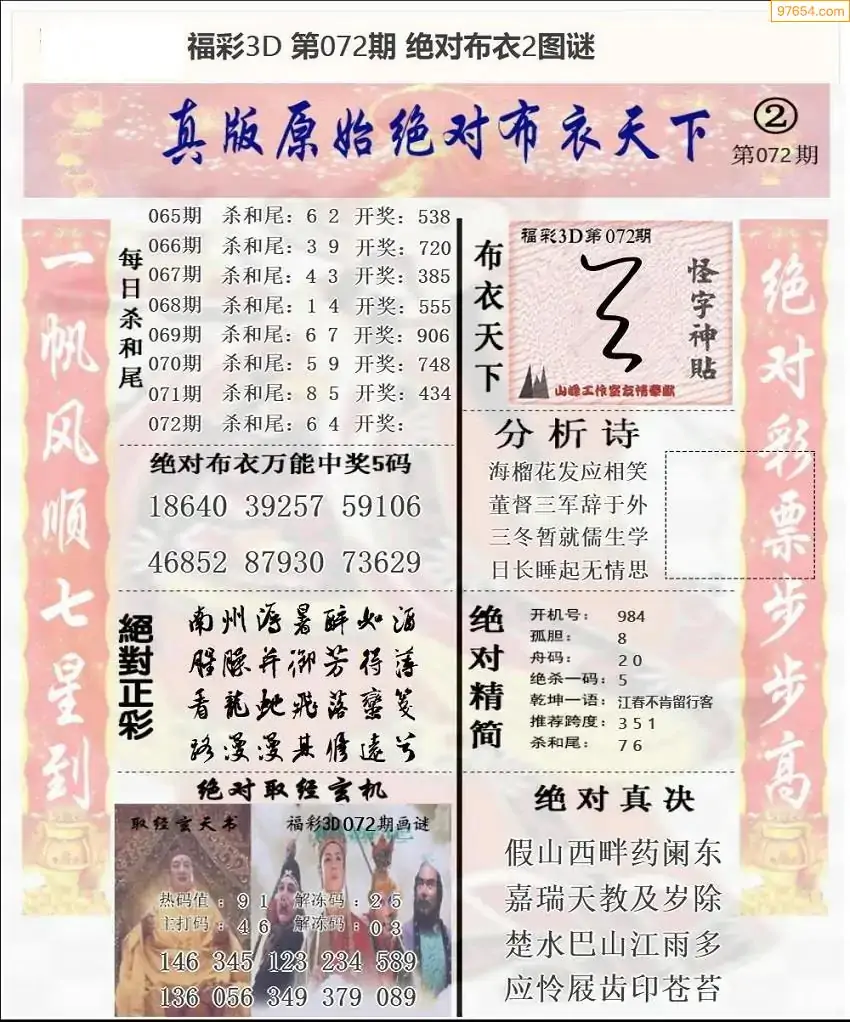 97654.com
福彩3D 第072期 绝对布衣2图谜
真版原始绝对布衣天下
②
第072期
一帆风顺七星到
每日杀和尾
065期 杀和尾: 6 2 开奖: 538
066期 杀和尾: 3 9 开奖: 720
067期 杀和尾: 4 3 开奖: 385
068期 杀和尾: 1 4 开奖: 555
069期 杀和尾: 6 7 开奖: 906
070期 杀和尾: 5 9 开奖: 748
071期 杀和尾: 8 5 开奖: 434
072期 杀和尾: 6 4 开奖:
绝对布衣万能中奖5码
18640 39257 59106
46852 87930 73629
絕對正彩
南州溽暑醉如酒
腥臊并御芳得薄
看龍蛇飛落蠻笺
路漫漫其修遠兮
绝对取经玄机
取经玄天书
福彩3D072期画谜
热码值:9 1 解冻码:2 5
主打码:4 6 解冻码:0 3
146 345 123 234 589
136 056 349 379 089
布衣天下
福彩3D第072期
怪字神貼
山峰工作室友情奉献
分析诗
海榴花发应相笑
董督三军辞于外
三冬暂就儒生学
日长睡起无情思
绝对精简
开机号: 984
孤胆: 8
舟码: 2 0
绝杀一码: 5
乾坤一语: 江春不肯留行客
推荐跨度: 3 5 1
杀和尾: 7 6
绝对真决
假山西畔药阑东
嘉瑞天教及岁除
楚水巴山江雨多
应怜屐齿印苍苔
绝对彩票步步高